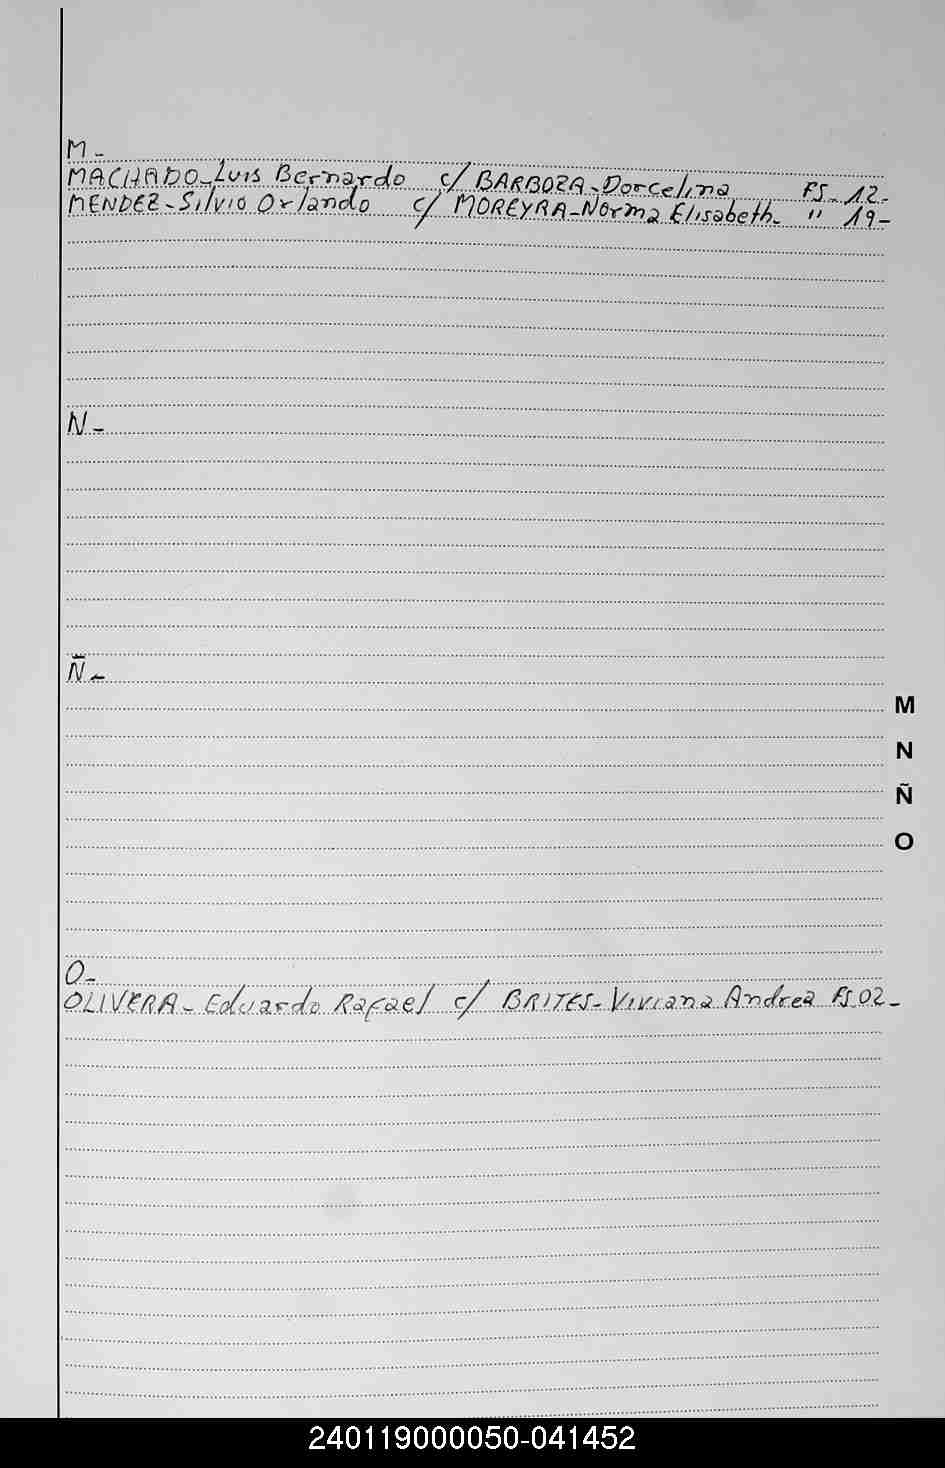 M-
MACHADO-Luis Bernardo c/ BARBOZA-Dorcelina FS. 12.
MENDEZ-Silvio Orlando c/ MOREYRA-Norma Elisabeth. " 19-
N-
Ñ-
M
N
Ñ
O
O-
OLIVERA-Eduardo Rafael c/ BRITES-Viviana Andrea FS 02-
240119000050-041452